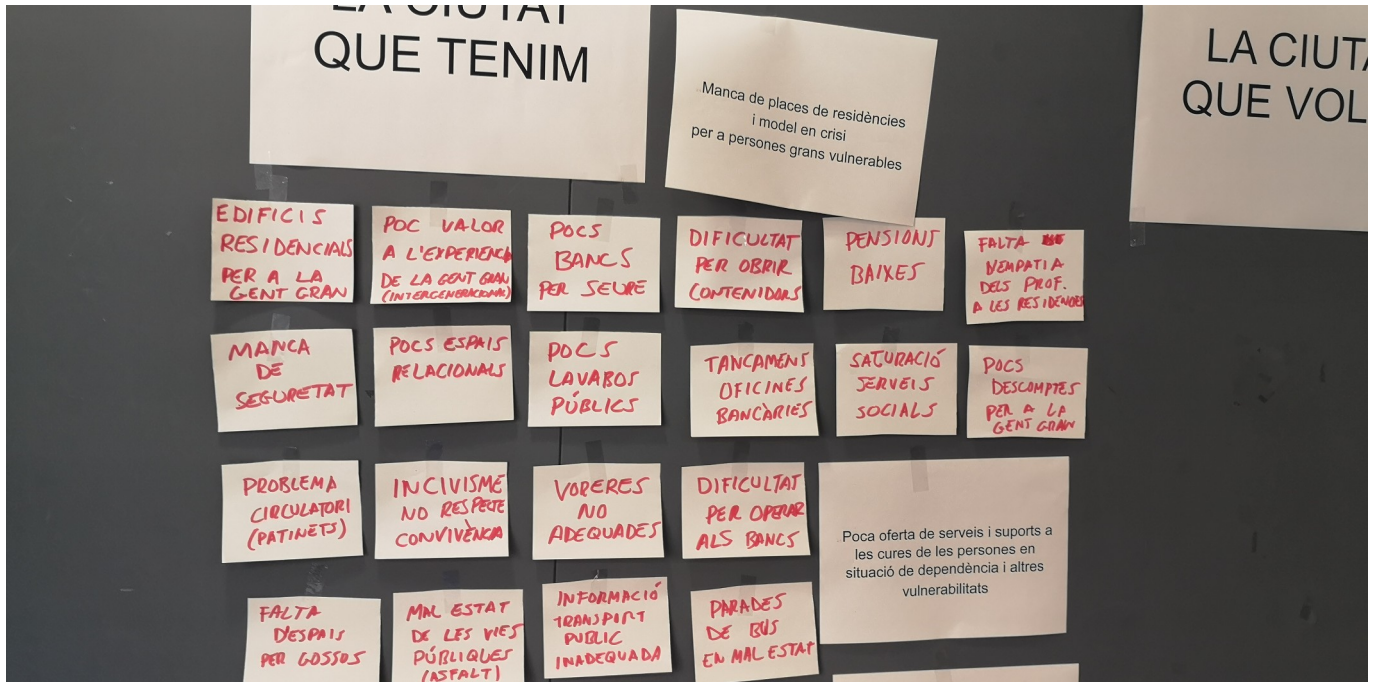 LA CIUTAT
QUE TENIM
Manca de places de residències
i model en crisi
per a persones grans vulnerables
LA CIUTA
QUE VOL
EDIFICIS
RESIDENCIALS
PER A LA
GENT GRAN
POC VALOR
A L'EXPERIENCI
DE LA GENT GRAN
(INTERGENERACIONAL)
POCS
BANCS
PER SEURE
DIFICULTAT
PER OBRIR
CONTENIDORS
PENSIONS
BAIXES
FALTA
D'EMPATIA
DELS PROF.
A LES RESIDÈNCIES
MANCA
DE
SEGURETAT
POCS ESPAIS
RELACIONALS
POCS
LAVABOS
PÚBLICS
TANCAMENS
OFICINES
BANCÀRIES
SATURACIÓ
SERVEIS
SOCIALS
POCS
DESCOMPTES
PER A LA
GENT GRAN
PROBLEMA
CIRCULATORI
(PATINETS)
INCIVISME
NO RESPECTE
CONVIVÈNCIA
VORERES
NO
ADEQUADES
DIFICULTAT
PER OPERAR
ALS BANCS
Poca oferta de serveis i suports a
les cures de les persones en
situació de dependència i altres
vulnerabilitats
FALTA
D'ESPAIS
PER GOSSOS
MAL ESTAT
DE LES VIES
PÚBLIQUES
(ASFALT)
INFORMACIÓ
TRANSPORT
PUBLIC
INADEQUADA
PARADES
DE BUS
EN MAL ESTAT